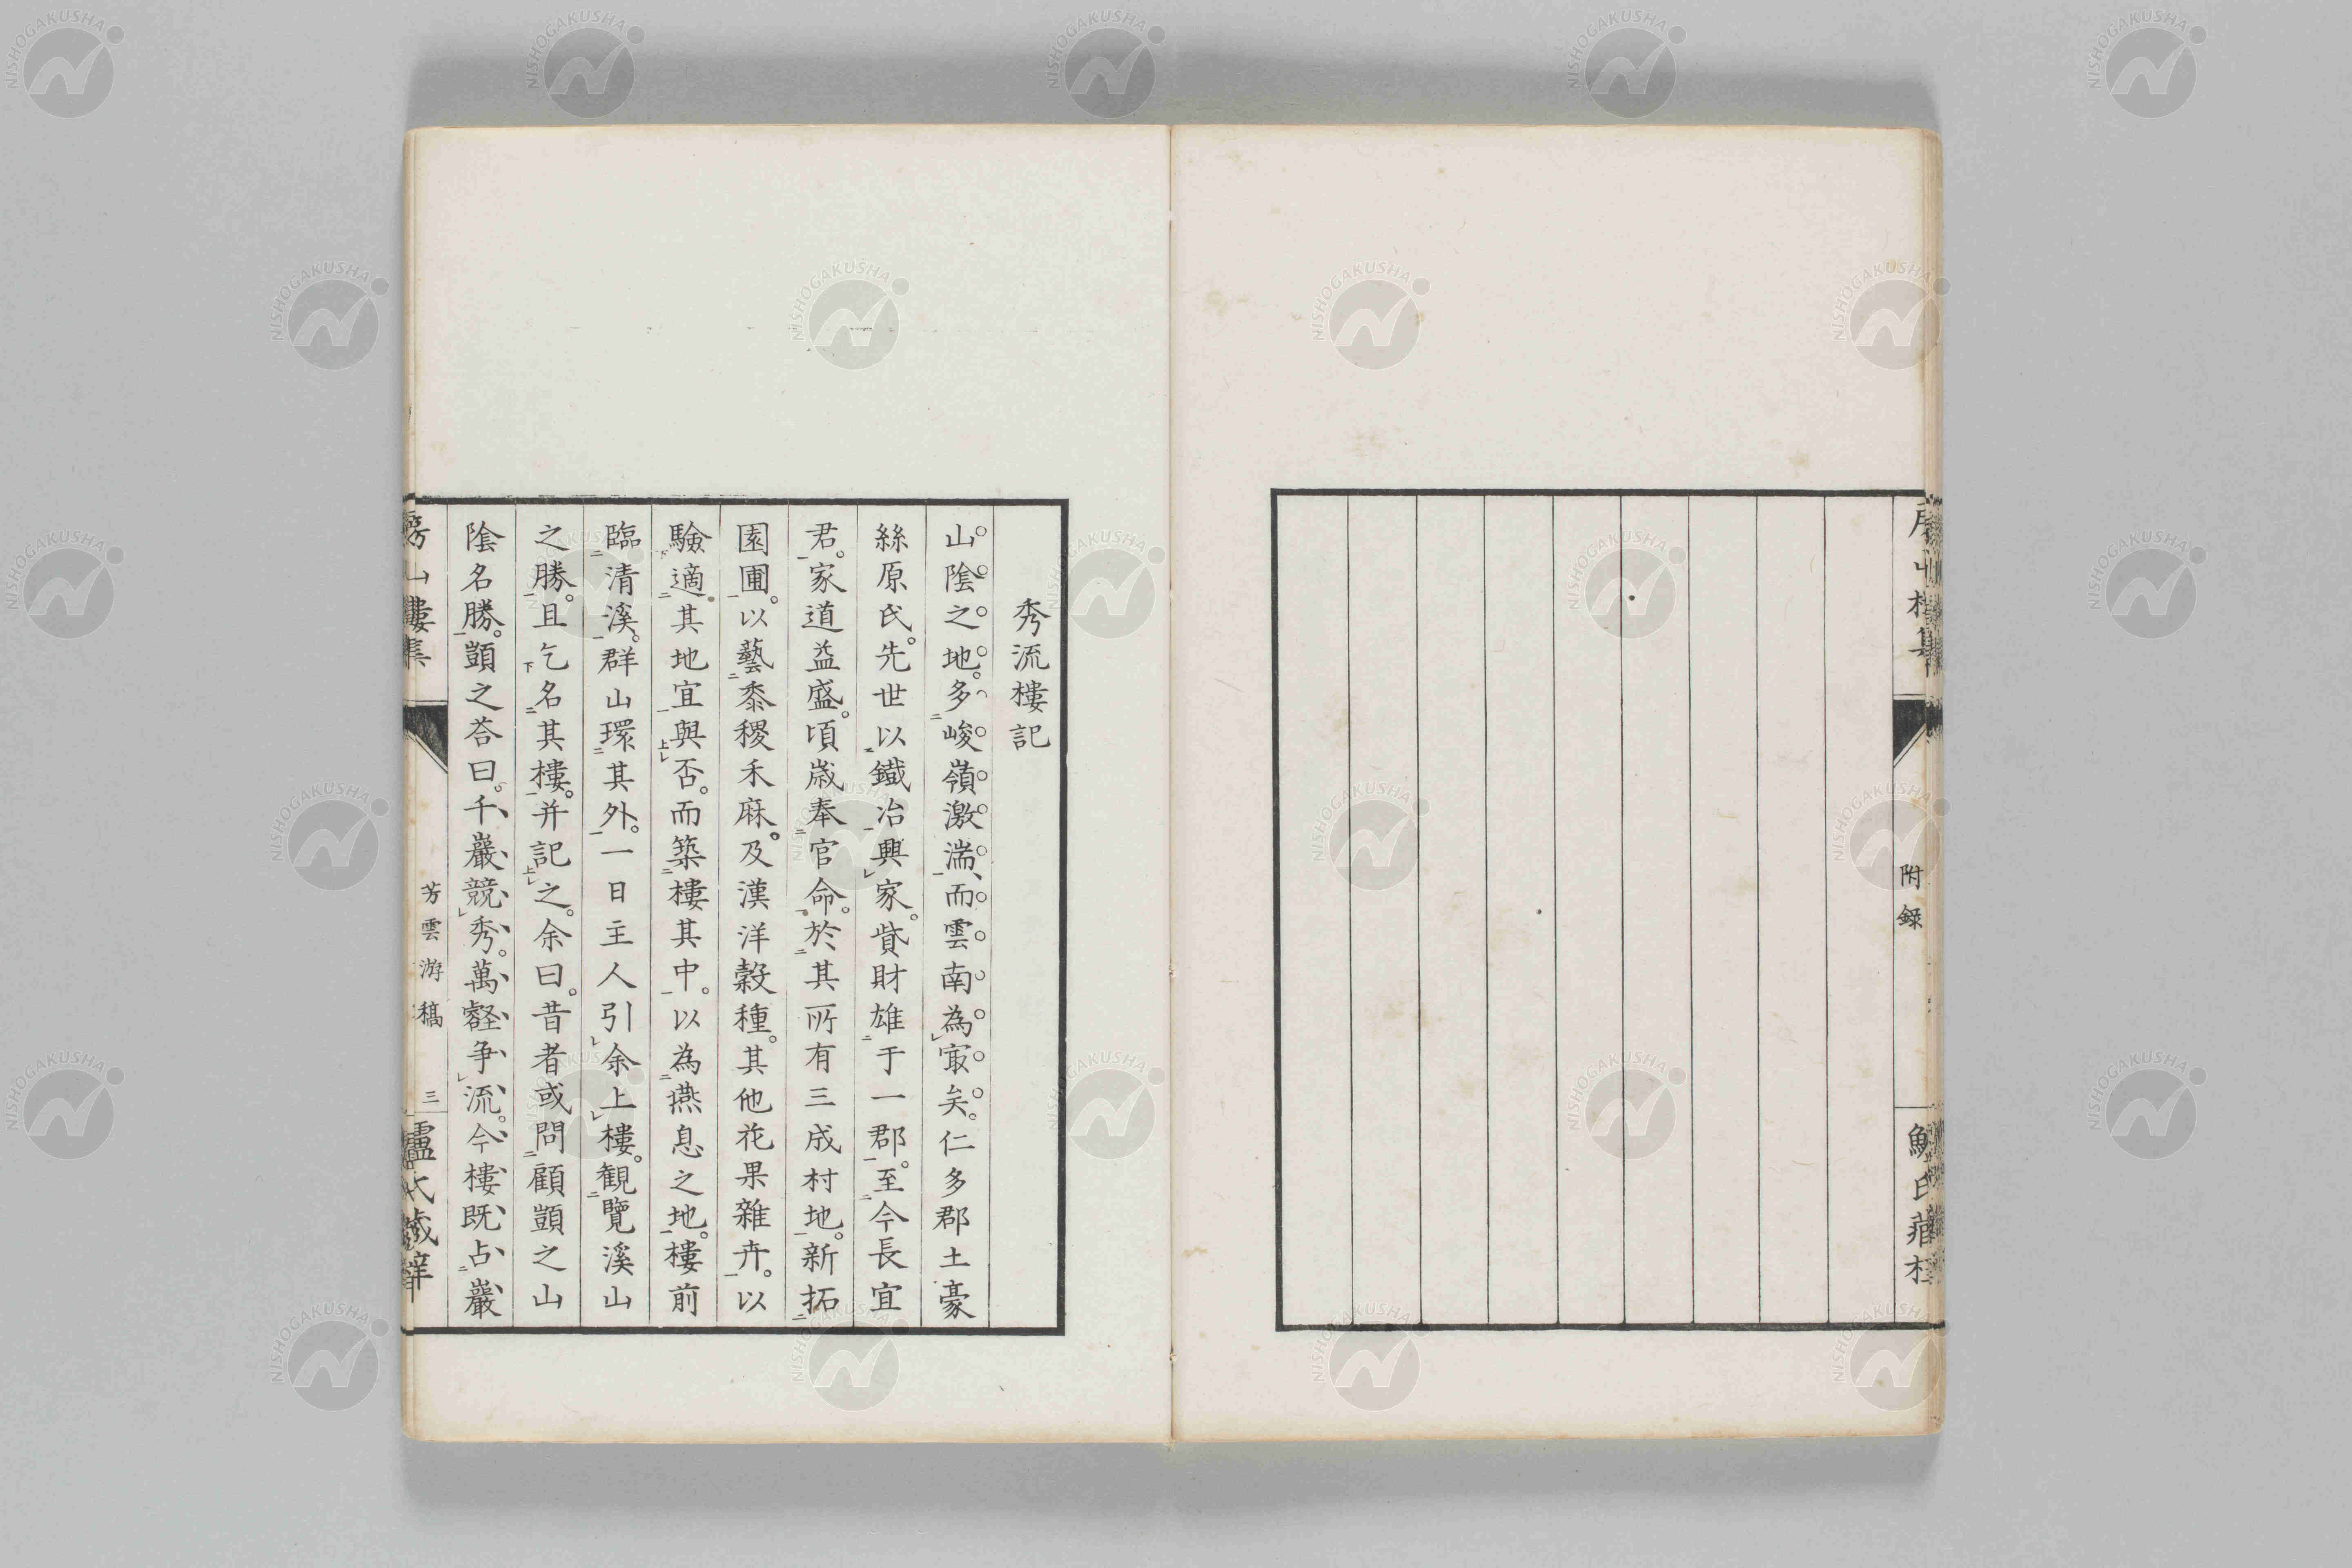 附録
秀流樓記
山陰之地。多峻嶺激湍、而雲南為冣矣。仁多郡土豪
絲原氏。先世以鐵冶興家。貲財雄于一郡。至今長宜
君。家道益盛。頃歳奉官命。於其所有三成村地。新拓
園圃。以藝黍稷禾麻。及漢洋穀種。其他花果雜卉。以
驗適其地宜與否。而築樓其中。以為燕息之地。樓前
臨清溪。群山環其外。一日主人引余上樓。観覽溪山
之勝。且乞名其樓。并記之。余曰。昔者或問顧顗之山
陰名勝。顗之荅曰。千巖競秀。萬壑争流。今樓既占巖
山樓集
芳雲游稿
三
NISHOGAKUSHA